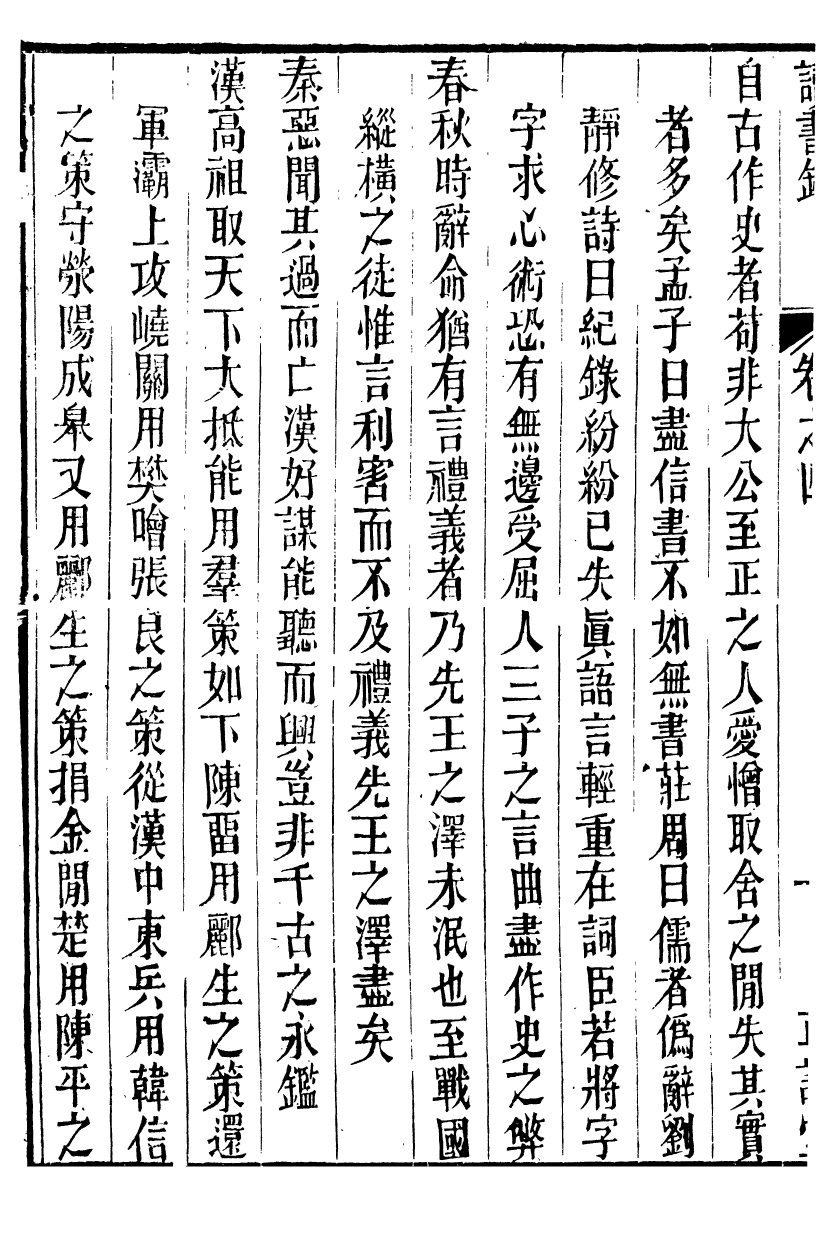 讀書錄　卷之四　一　正誼堂
自古作史者苟非大公至正之人愛憎取舍之閒失其實
者多矣孟子曰盡信書不如無書莊周曰儒者僞辭劉
靜修詩曰紀錄紛紛已失眞語言輕重在詞臣若將字
字求心術恐有無邊受屈人三子之言曲盡作史之弊
春秋時辭命猶有言禮義者乃先王之澤未泯也至戰國
縱橫之徒惟言利害而不及禮義先王之澤盡矣
秦惡聞其過而亡漢好謀能聽而興豈非千古之永鑑
漢高祖取天下大抵能用羣策如下陳畱用酈生之策還
軍灞上攻嶢關用樊噲張良之策從漢中東兵用韓信
之策守滎陽成臯又用酈生之策捐金閒楚用陳平之